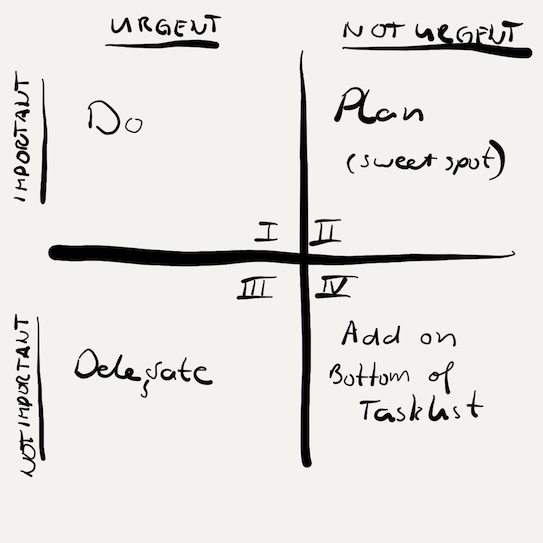 URGENT
NOT URGENT
IMPORTANT
Do
Plan
(sweet spot)
I
II
III
IV
NOT IMPORTANT
Delegate
Add on
Bottom of
Tasklist